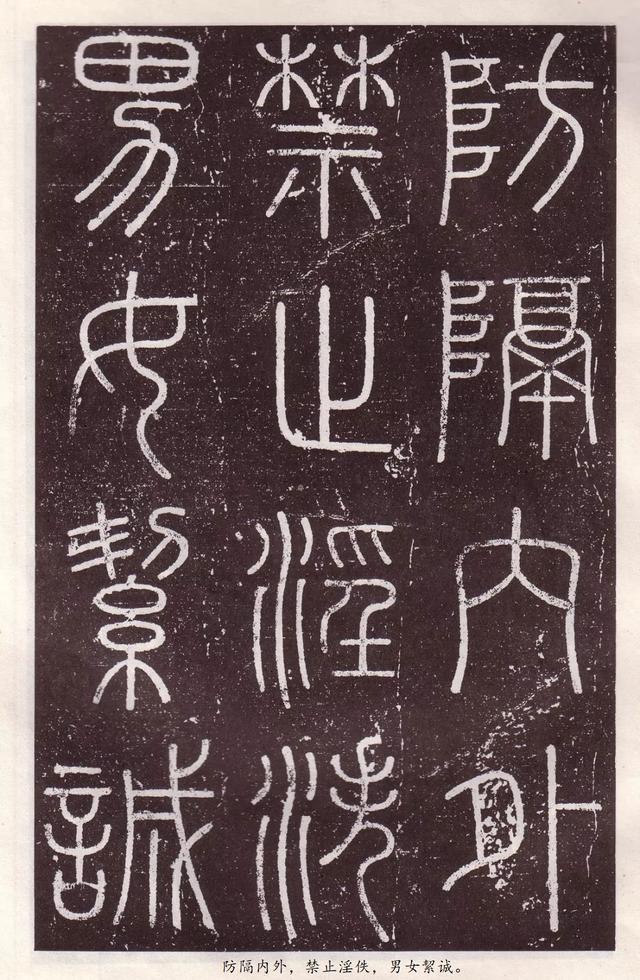 防隔内外
禁止淫泆
男女絜誠
防隔内外，禁止淫佚，男女絜诚。